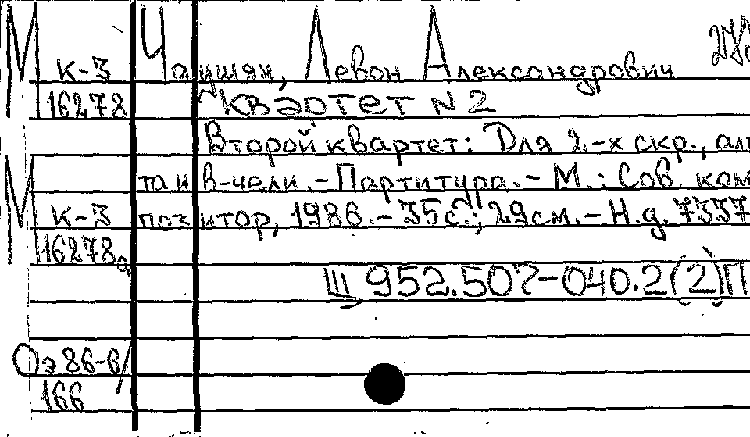 М К-3 Чаушян, Левон Александрович
16278 Квартет N 2
Второй квартет: Для 2-х скр., аль
та и в-чели. - Партитура. - М.: Сов. ком
М К-3 позитор, 1986. - 35 с.; 29 см. - Н.д. 7337
16278а
Ш 952.507-040.2(2)П
Оэ 86-6/
166